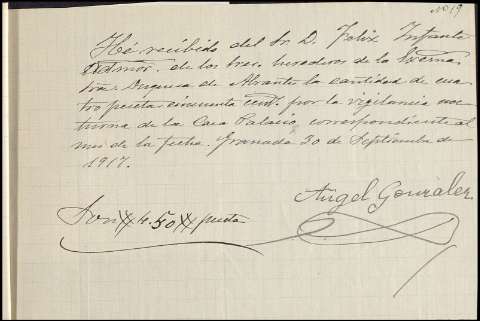 nº 19
He recibido del Sr. D. Felix Infante
Admor. de los Sres. herederos de la Excma.
Sra. Duquesa de Abrantes la cantidad de cua-
tro pesetas cincuenta cent. por la vigilancia noc-
turna de la Casa Palacio, correspondiente al
mes de la fecha. Granada 30 de Septiembre de
1917.
Angel Gonzalez
Son # 4.50 # pesetas